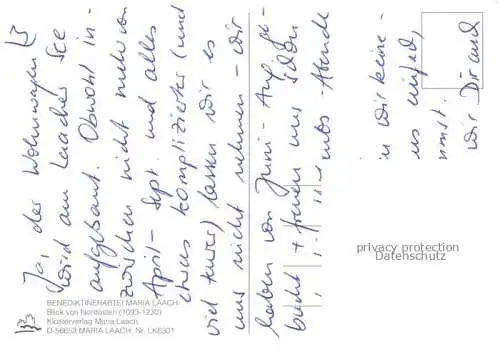 Ja, der Wohnwagen
wird am Laacher See
aufgebaut. Obwohl in-
zwischen nicht mehr von
April - Sept. und alles
etwas komplizierter (und
viel teurer) lassen wir es
uns nicht nehmen - wir
haben von Juni - Aug. ge-
bucht + freuen uns
Abende
in wir keine
uns einfach
sonst.
wir Dir und
privacy protection
Datenschutz
BENEDIKTINERABTEI MARIA LAACH
Blick von Nordosten (1093-1230)
Kunstverlag Maria Laach
D-56653 MARIA LAACH, Nr. LK6301